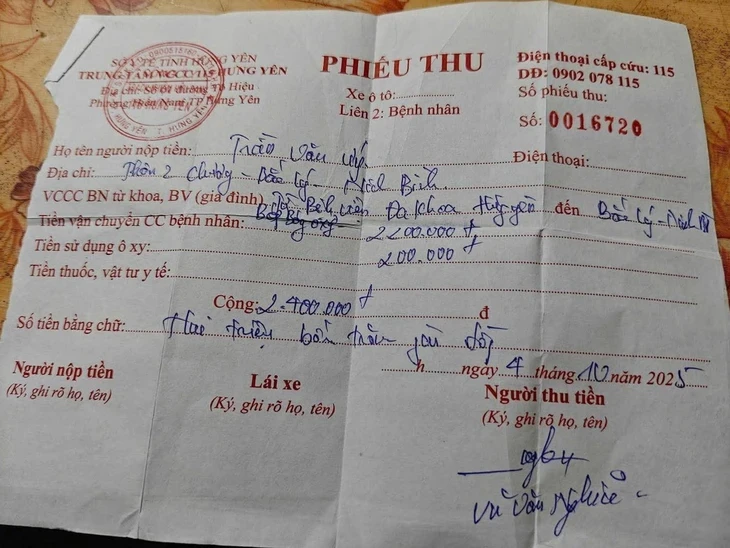 SỞ Y TẾ TỈNH HƯNG YÊN
TRUNG TÂM VCCC 115 HƯNG YÊN
Địa chỉ: Số 01 đường Tô Hiệu
Phường Hiến Nam, TP Hưng Yên
PHIẾU THU
Xe ô tô:
Liên 2: Bệnh nhân
Điện thoại cấp cứu: 115
DĐ: 0902 078 115
Số phiếu thu:
Số: 0016720
Họ tên người nộp tiền: Trần Văn Điện thoại:
Địa chỉ: Thôn 2 - Bắc Lý - Ninh Bình
VCCC BN từ khoa, BV (gia đình) Bệnh viện Đa Khoa Hưng yên đến Bắc Lý -
Tiền vận chuyển CC bệnh nhân: 2200.000 đ
Tiền sử dụng ô xy: 200.000 đ
Tiền thuốc, vật tư y tế:
Cộng: 2.400.000 đ đ
Số tiền bằng chữ: Hai triệu bốn trăm đồng
h ngày 4 tháng 10 năm 2025
Người nộp tiền
(Ký, ghi rõ họ, tên)
Lái xe
(Ký, ghi rõ họ, tên)
Người thu tiền
(Ký, ghi rõ họ, tên)
Vũ Văn